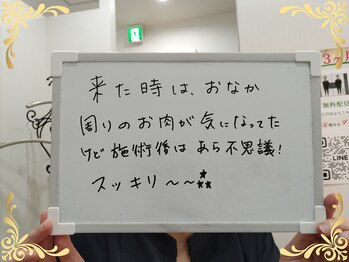 来た時は、おなか
周りのお肉が気になってた
けど施術後は あら不思議!
スッキリ〜〜
3ヶ月
無料配信
LINE